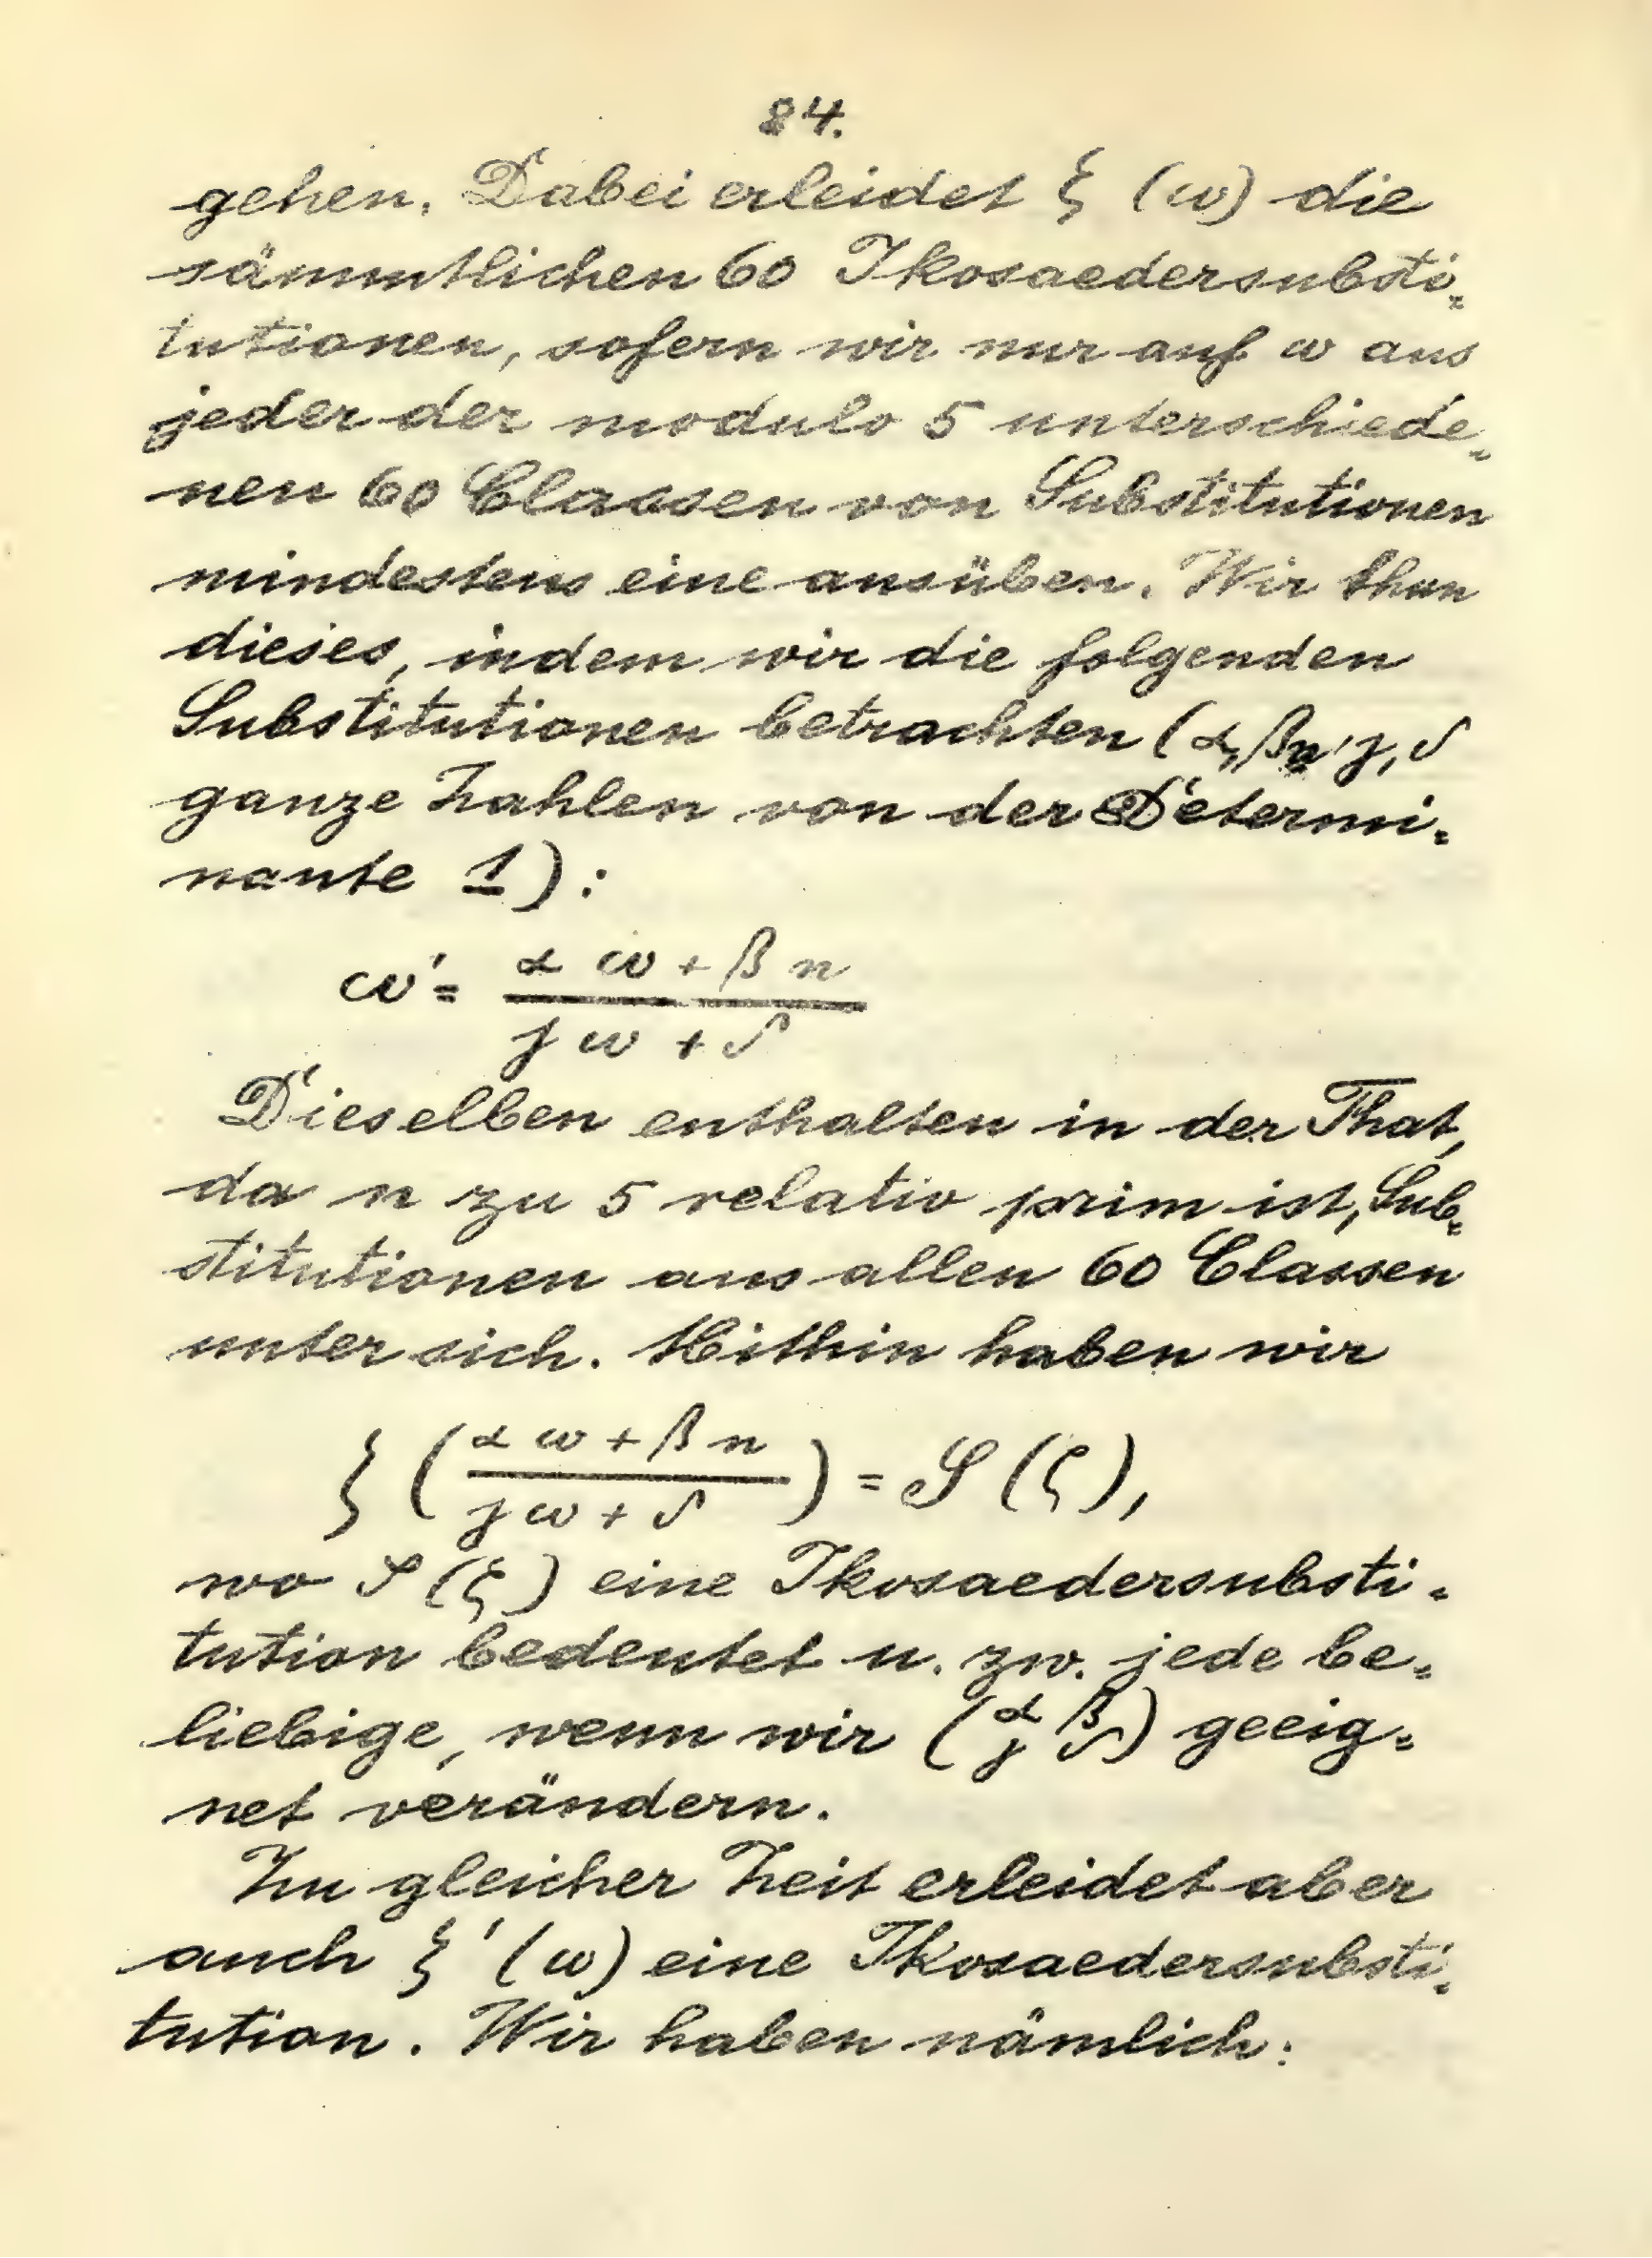 84.
gehen. Dabei erleidet ζ (ω) die
sämmtlichen 60 Ikosaedersubsti=
tutionen, sofern wir nur auf ω aus
jeder der modulo 5 unterschiede=
nen 60 Classen von Substitutionen
mindestens eine ausüben. Wir thun
dieses, indem wir die folgenden
Substitutionen betrachten (α, βn, γ, δ
ganze Zahlen von der Determi=
nante 1):
ω' = (α ω + β n) / (γ ω + δ)
Dieselben enthalten in der That,
da n zu 5 relativ prim ist, Sub=
stitutionen aus allen 60 Classen
unter sich. Mithin haben wir
ζ ((α ω + β n) / (γ ω + δ)) = S (ζ),
wo S (ζ) eine Ikosaedersubsti=
tution bedeutet u. zw. jede be=
liebige, wenn wir (α β / γ δ) geeig=
net verändern.
Zu gleicher Zeit erleidet aber
auch ζ' (ω) eine Ikosaedersubsti=
tution. Wir haben nämlich: